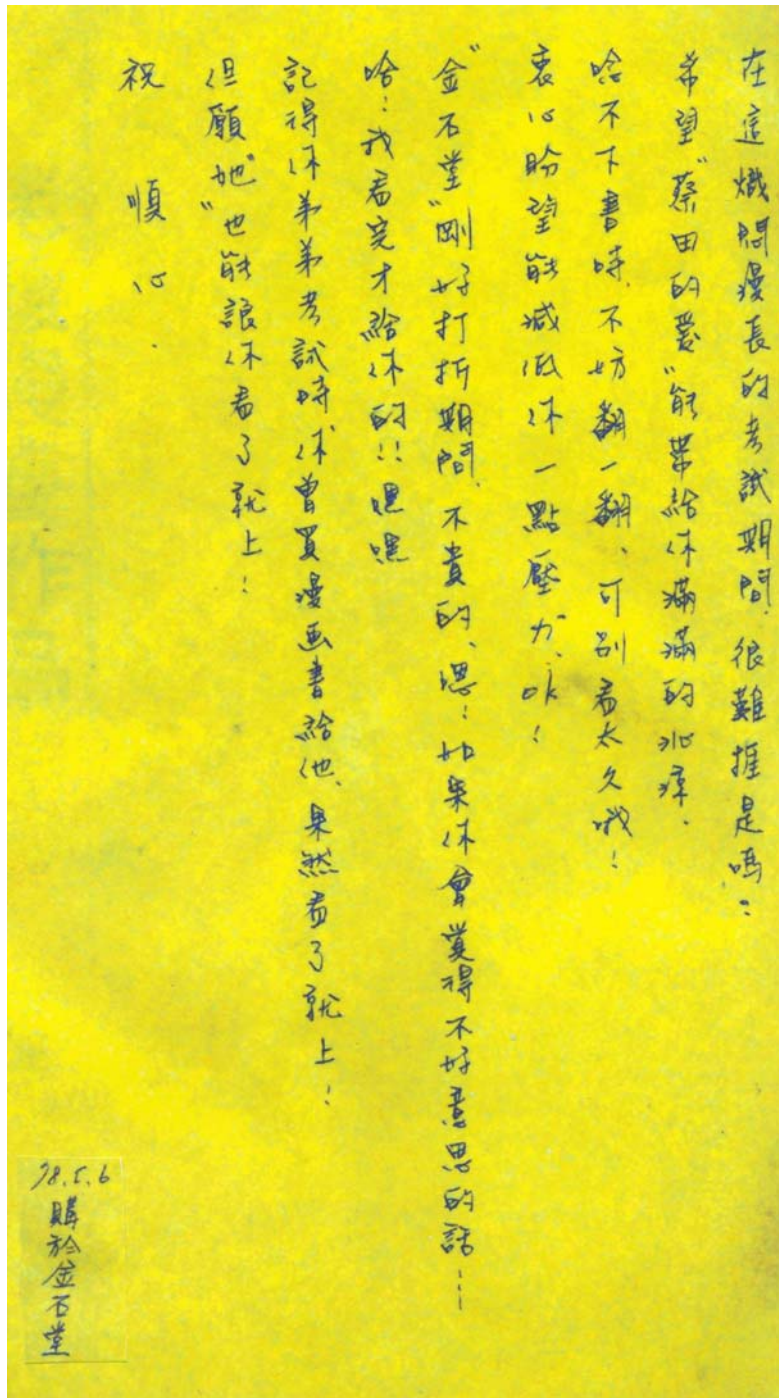 在這熾悶漫長的考試期間.很難捱是嗎?
希望"蔡田的愛"能帶給你滿滿的沁涼.
啃不下書時、不妨翻一翻、可別看太久哦!
衷心盼望能減低你一點壓力、ok!
"金石堂"剛好打折期間、不貴的、嗯!如果你會覺得不好意思的話…
哈!我看完才給你的!!嘿嘿
記得你弟弟考試時你曾買漫画書給他、果然看了就上!
但願"她"也能讓你看了就上!
祝 順心.
98.5.6
購於金石堂